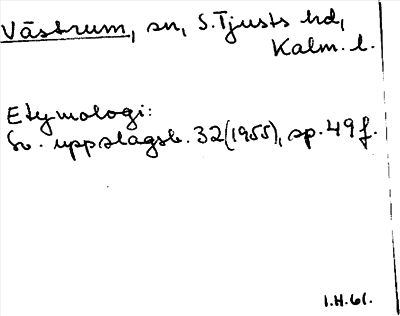 Västrum, sn, S. Tjusts hd,
Kalm. l.
Etymologi:
Sv. uppslagsb. 32(1955), sp. 49 f.
I.H.61.